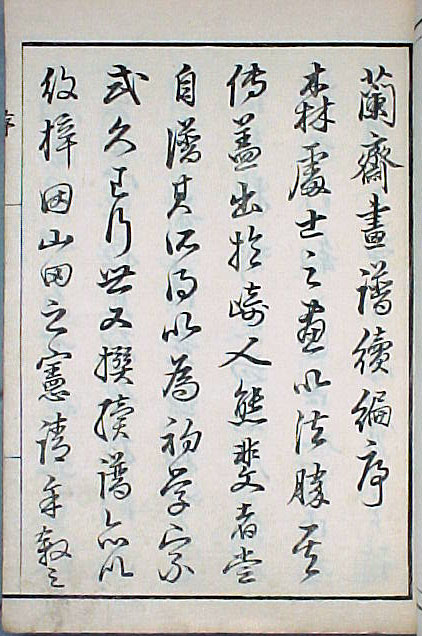 蘭齋畫譜續編序
森處士之畫以法勝其
傳蓋出於崎人熊斐者嘗
自譜其所得以為初學家
式久已行世又撰續譜亦以
梓因山田之憲請余敘之
序